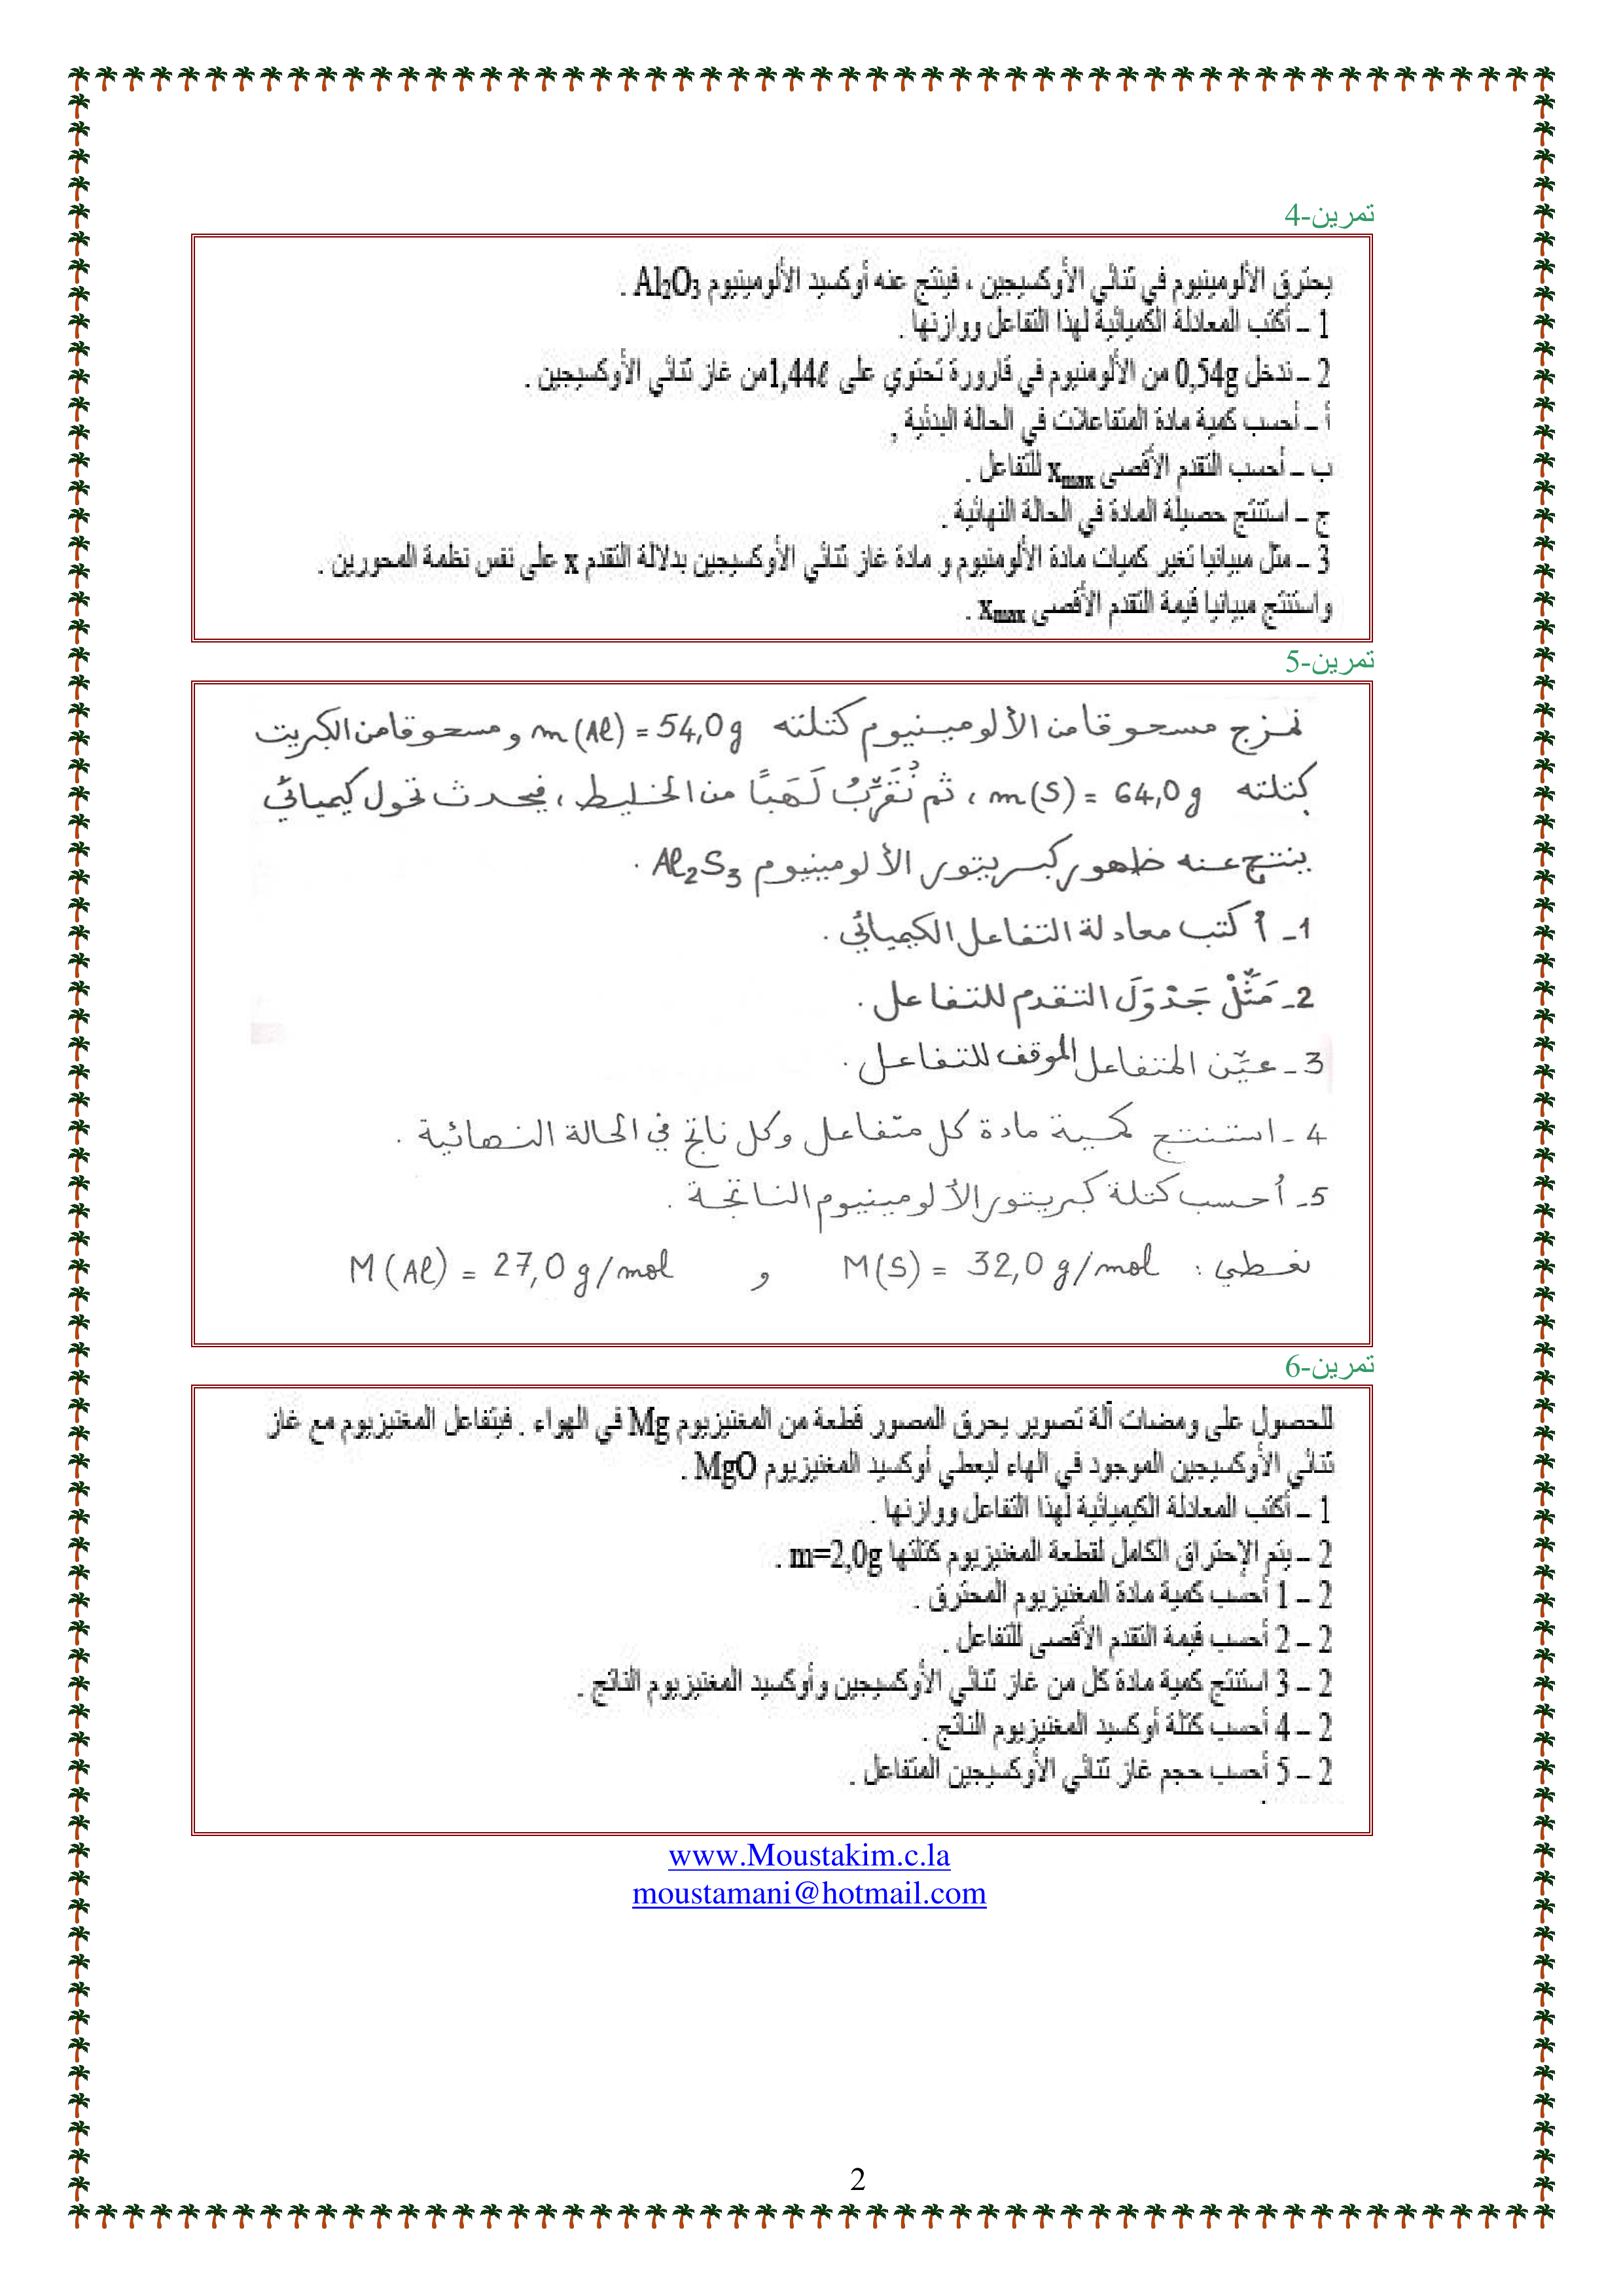 تمرين-4
يحترق الألومينيوم في ثنائي الأوكسيجين ، فينتج عنه أوكسيد الألومينيوم Al₂O₃ .
1 – أكتب المعادلة الكميائية لهذا التفاعل ووازنها .
2 – ندخل 0,54g من الألومنيوم في قارورة تحتوي على 1,44ℓ من غاز ثنائي الأوكسيجين .
أ – أحسب كمية مادة المتفاعلات في الحالة البدئية ,
ب – أحسب التقدم الأقصى xmax للتفاعل .
ج – استنتج حصيلة المادة في الحالة النهائية .
3 – مثل مبيانيا تغير كميات مادة الألومنيوم و مادة غاز ثنائي الأوكسيجين بدلالة التقدم x على نفس نظمة المحورين .
واستنتج مبيانيا قيمة التقدم الأقصى xmax .
تمرين-5
نمزج مسحوقا من الألومينيوم كتلته m(Al) = 54,0 g و مسحوقا من الكبريت
كتلته m(S) = 64,0 g ، ثم نُقَرِّبُ لَهَبًا من الخليط ، فيحدث تحول كيميائي
ينتج عنه ظهور كبريتور الألومينيوم Al₂S₃ .
1- أكتب معادلة التفاعل الكيميائي .
2- مَثِّلْ جَدْوَلَ التقدم للتفاعل .
3- عيّن المتفاعل الموقف للتفاعل .
4- استنتج كمية مادة كل متفاعل وكل ناتج في الحالة النهائية .
5- أحسب كتلة كبريتور الألومينيوم الناتجة .
نعطي : M(S) = 32,0 g/mol و M(Al) = 27,0 g/mol
تمرين-6
للحصول على ومضات آلة تصوير يحرق المصور قطعة من المغنيزيوم Mg في الهواء . فيتفاعل المغنيزيوم مع غاز
ثنائي الأوكسيجين الموجود في الهاء ليعطي أوكسيد المغنيزيوم MgO .
1 – أكتب المعادلة الكيميائية لهذا التفاعل ووازنها .
2 – يتم الإحتراق الكامل لقطعة المغنيزيوم كتلتها m=2,0g .
2 – 1 أحسب كمية مادة المغنيزيوم المحترق .
2 – 2 أحسب قيمة التقدم الأقصى للتفاعل .
2 – 3 استنتج كمية مادة كل من غاز ثنائي الأوكسيجين وأوكسيد المغنيزيوم الناتج .
2 – 4 أحسب كتلة أوكسيد المغنيزيوم الناتج .
2 – 5 أحسب حجم غاز ثنائي الأوكسيجين المتفاعل .
www.Moustakim.c.la
moustamani@hotmail.com
2